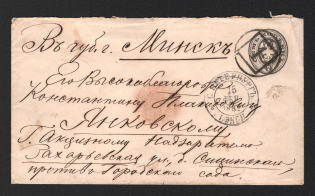 Въ губ. г. Минскъ
Его Высокоблагородію
Константину
Янковскому
Г. Акцизному Надзирателю
Захарьевская ул. д.
противъ Городскаго сада.